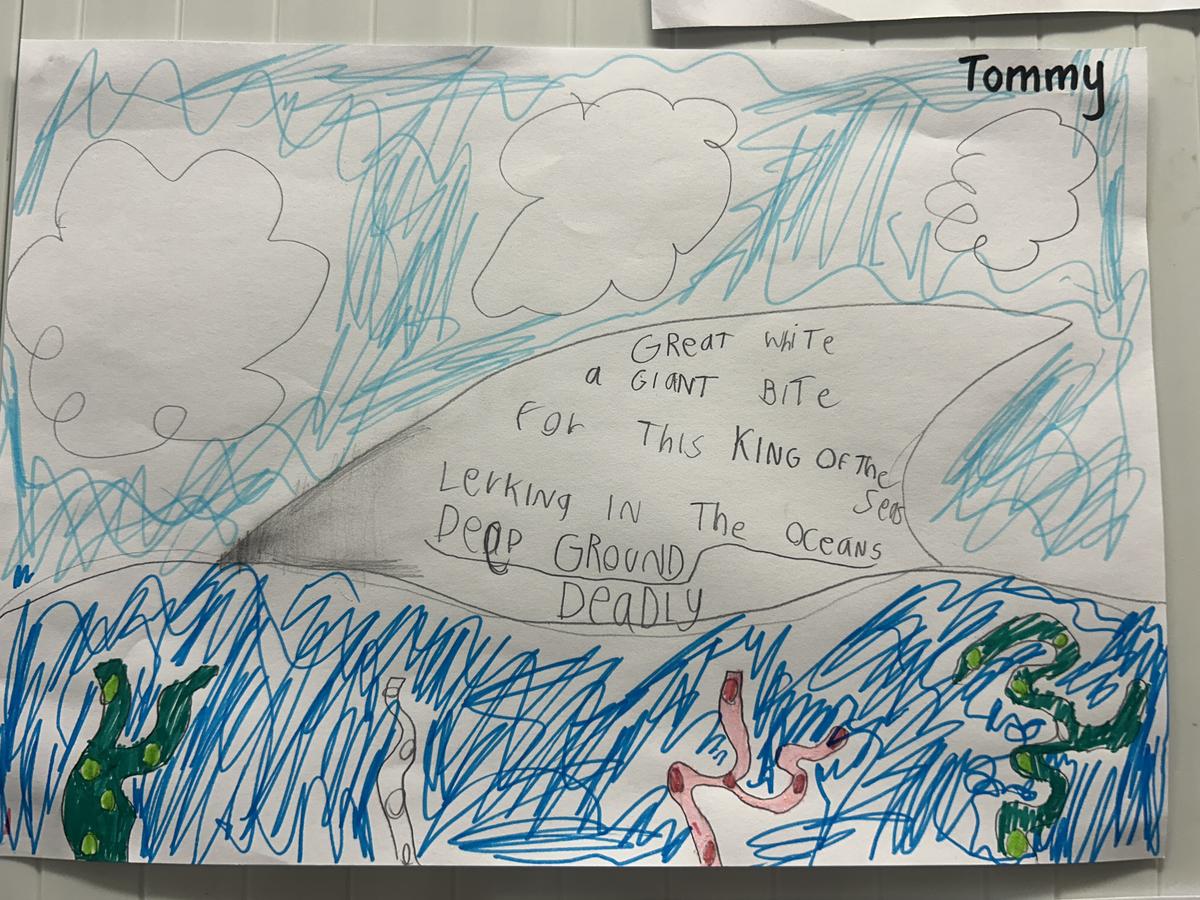 Tommy
GReaT WhiTe
a GIaNT BiTe
FOr This KING OF The
Seas
LerKing IN The Oceans
Deap GROUND
DeaDLy